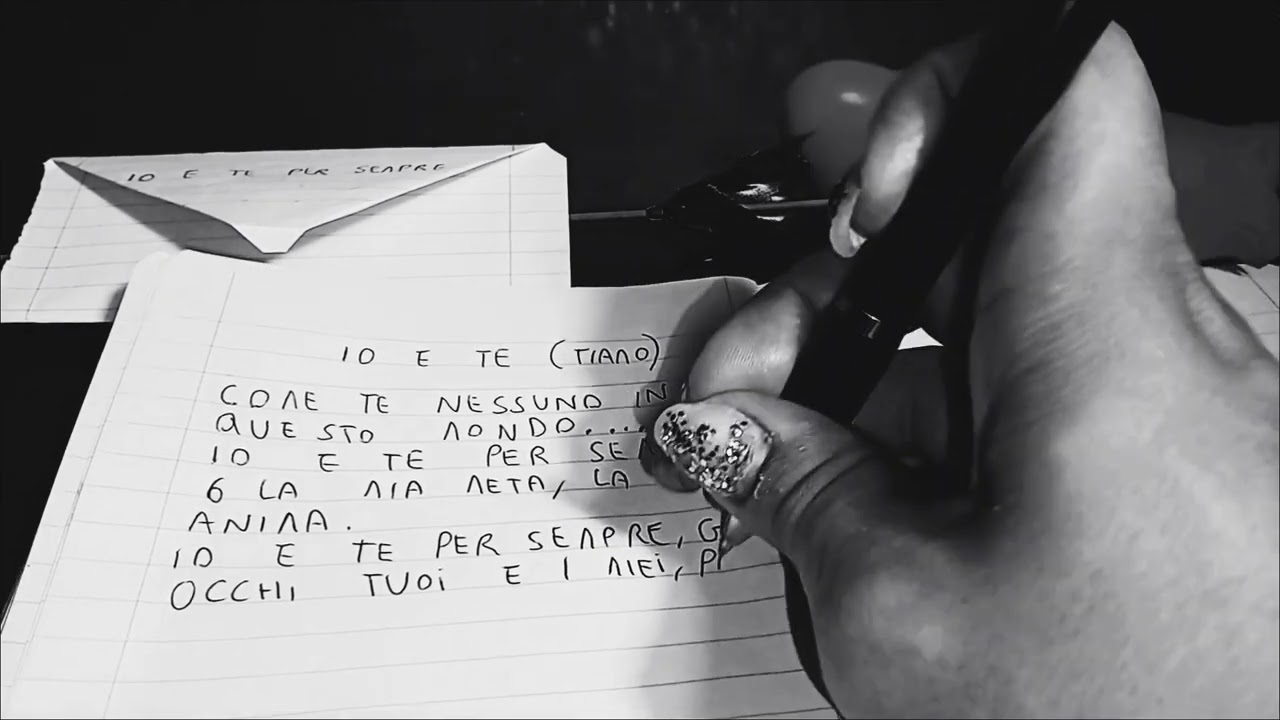 IO E TE PER SEMPRE
IO E TE (TIAMO)
COME TE NESSUNO IN
QUESTO MONDO....
IO E TE PER
6 LA MIA META, LA
ANIMA.
IO E TE PER SEMPRE,
OCCHI TUOI E I MIEI,